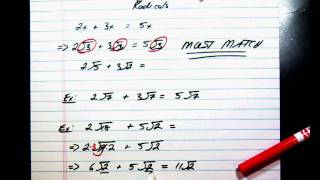 Radicals
2x + 3x = 5x
⇒ 2√3 + 3√3 = 5√3 MUST MATCH
2√5 + 3√7 =
Ex: 2√7 + 3√7 = 5√7
Ex: 2√18 + 5√2 =
⇒ 2·3√2 + 5√2
⇒ 6√2 + 5√2 = 11√2